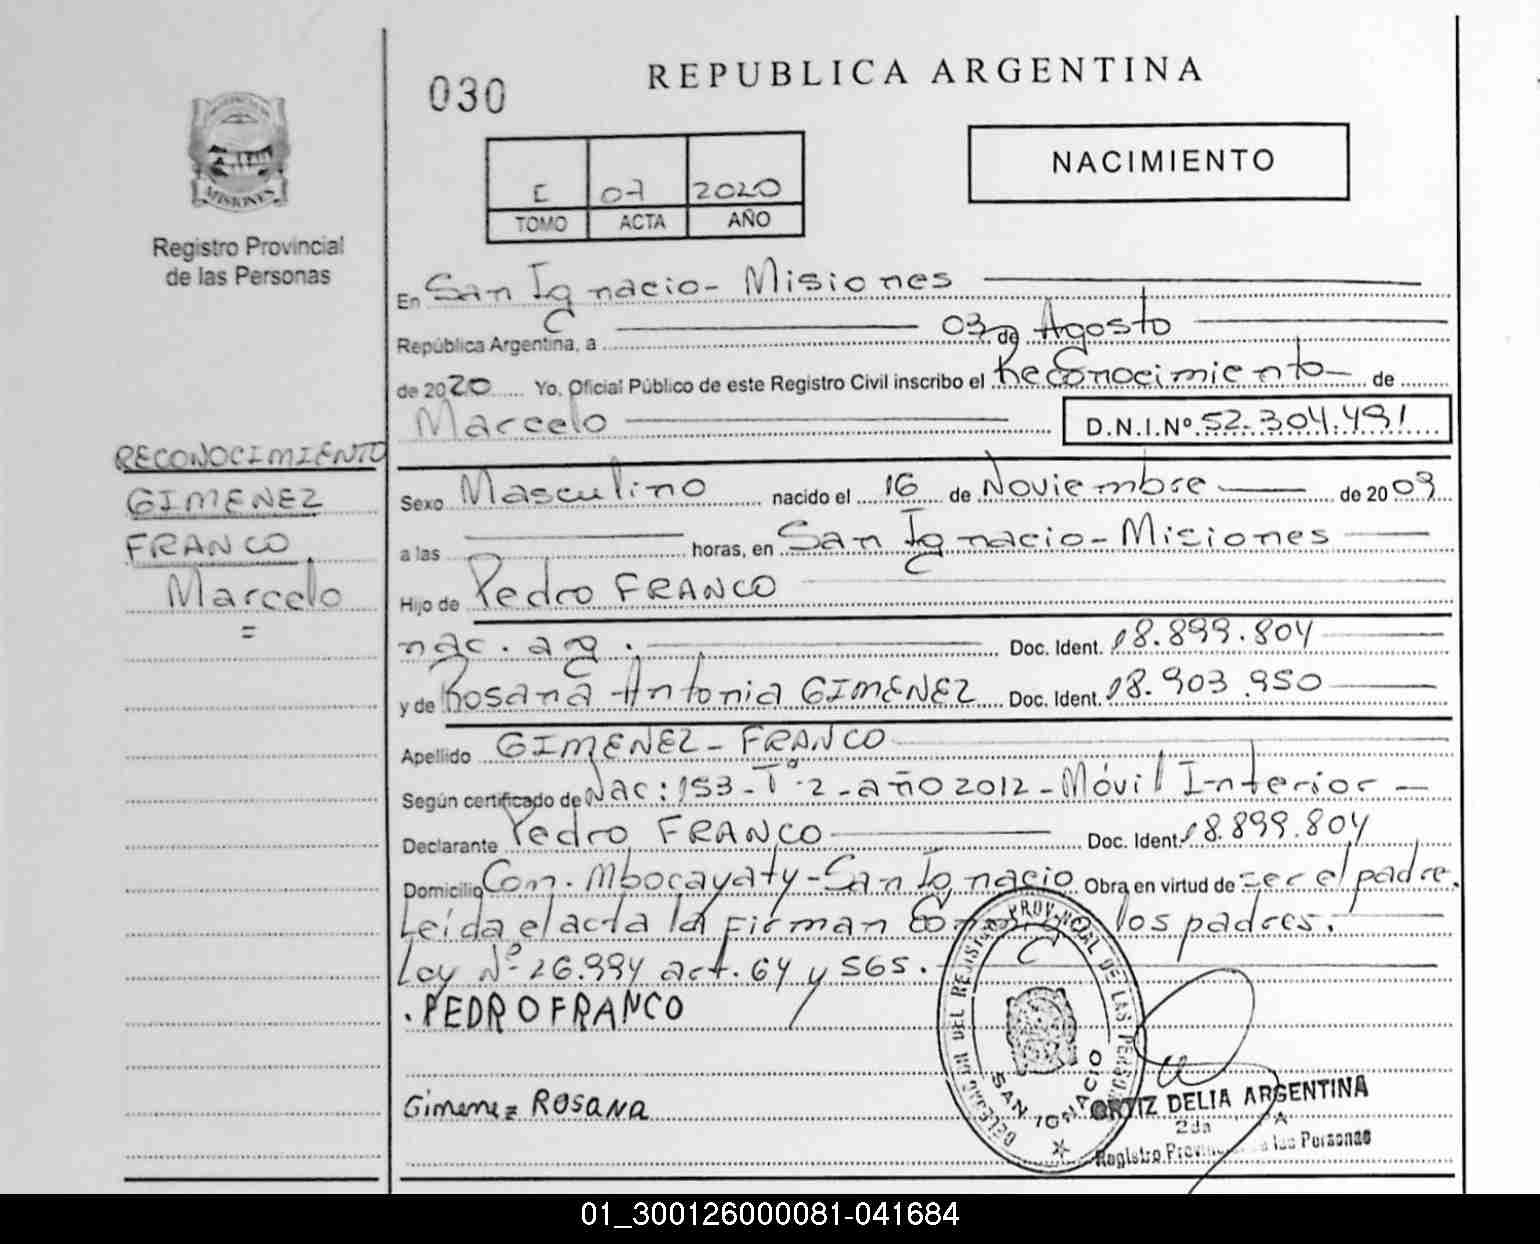 030
REPUBLICA ARGENTINA
NACIMIENTO
MISIONES
Registro Provincial
de las Personas
07 2020
TOMO ACTA AÑO
En San Ignacio - Misiones
República Argentina, a 03 de Agosto
de 2020 Yo, Oficial Público de este Registro Civil inscribo el Reconocimiento de
Marcelo D.N.I.Nº 52.304.491
RECONOCIMIENTO
GIMENEZ
FRANCO
Marcelo
=
Sexo Masculino nacido el 16 de Noviembre de 2009
a las horas, en San Ignacio - Misiones
Hijo de Pedro FRANCO
nac. arg. Doc. Ident. 18.899.804
y de Rosana Antonia GIMENEZ Doc. Ident. 18.903.950
Apellido GIMENEZ - FRANCO
Según certificado de Nac: 153 - Tº 2 - año 2012 - Móvil Interior
Declarante Pedro FRANCO Doc. Ident. 18.899.804
Domicilio Com. Mbocayaty - San Ignacio Obra en virtud de ser el padre.
Leída el acta la firman los padres.
Ley Nº 26.994 art. 64 y 565.
. PEDRO FRANCO
Gimenez ROSANA
DEL REGISTRO PROVINCIAL DE LAS PERSONAS
SAN IGNACIO
ORTIZ DELIA ARGENTINA
2da
Registro Provincial de las Personas
01_300126000081-041684